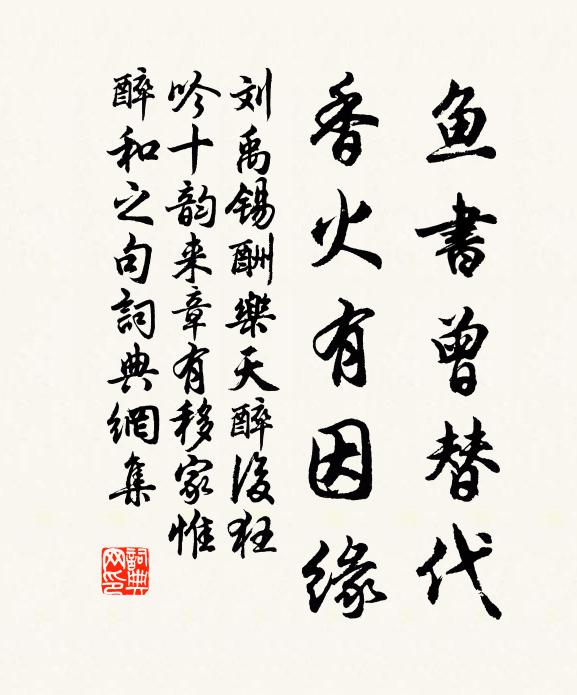 鱼書曾替代
香火有因緣
刘禹锡酬樂天醉後狂
吟十韵来章有移家惟
醉和之句詞典網集
詞典網印